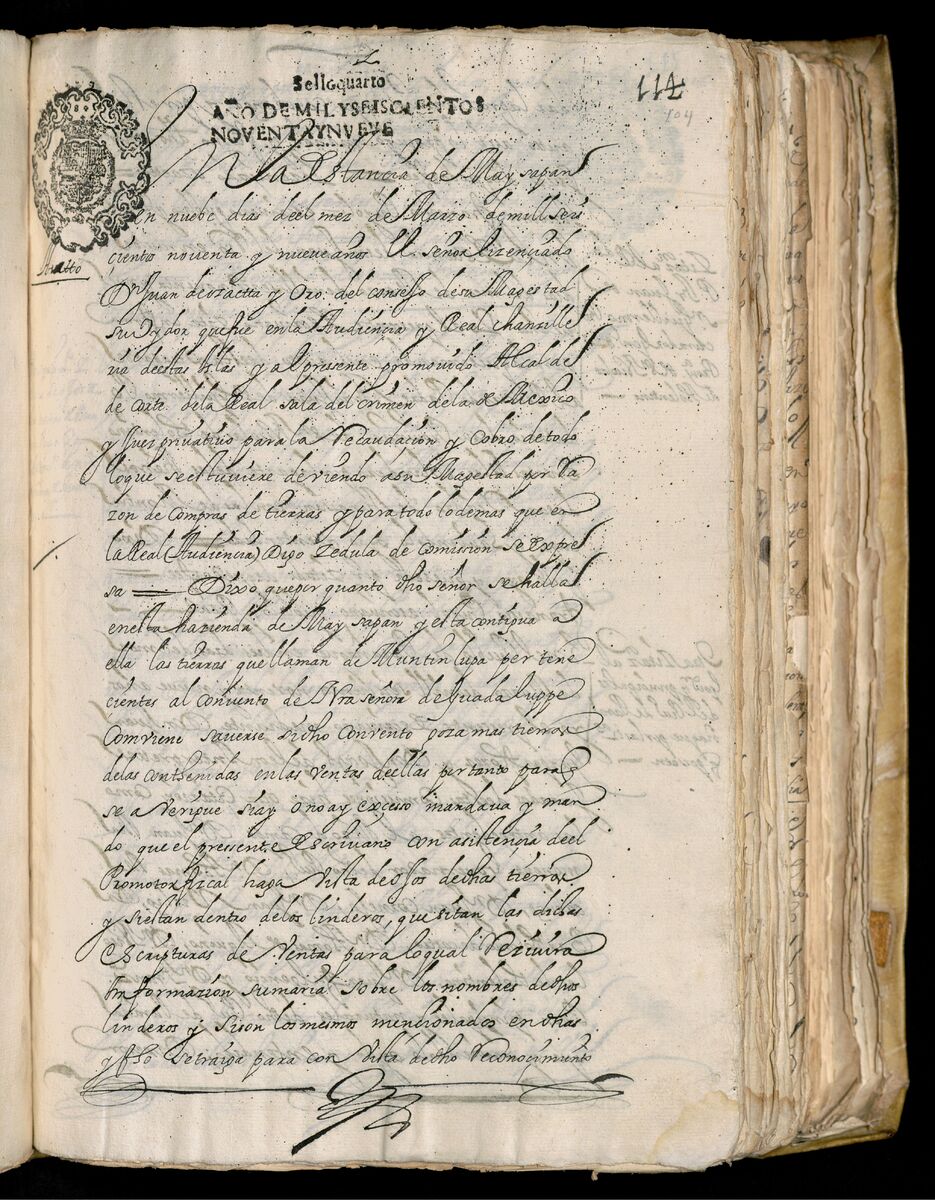 Sello quarto
AÑO DE MIL Y SEISCIENTOS
NOVENTA Y NVEVE
114
104
En la Estancia de Maysapan
en nuebe dias deel mez de Marzo de mill seis
cientos noventa y nueve años El señor lizençiado
Dn Juan de ozaetta y Oro del consejo de su Magestad
su Oydor que fue en la Audiencia y Real chansille
ria de estas Islas y al presente promovido Alcalde
de corte de la Real sala del crimen de la de Mexico
y Juez privativo para la Recaudaçion y Cobro de todo
lo que se estuviere deviendo a su Magestad por Ra
zon de Compras de tierras y para todo lo demas que en
la Real (Audiencia) Digo Zedula de comision se expre
sa — Dixo que por quanto dho señor se halla
en esta hazienda de Maysapan y esta contigua a
ella las tierras que llaman de Muntinlupa pertene
cientes al Convento de Nra señora de guadaluppe
Comviene saverse si dho convento poza mas tierras
de las conthenidas en las ventas de ellas por tanto para q
se averigue si ay o no ay excesso mandava y man
do que el pressente Escrivano con asistençia de el
Promotor fizcal haga Vista de ojos de dhas tierras
y si estan dentro de los linderos, que sitan las dichas
Escripturas de Ventas para lo qual Rezivira
Informazion sumaria sobre los nombres de dhos
linderos y si son los mesmos mencionados en dhas
y fho se traiga para con Vista de dho Reconoçimiento